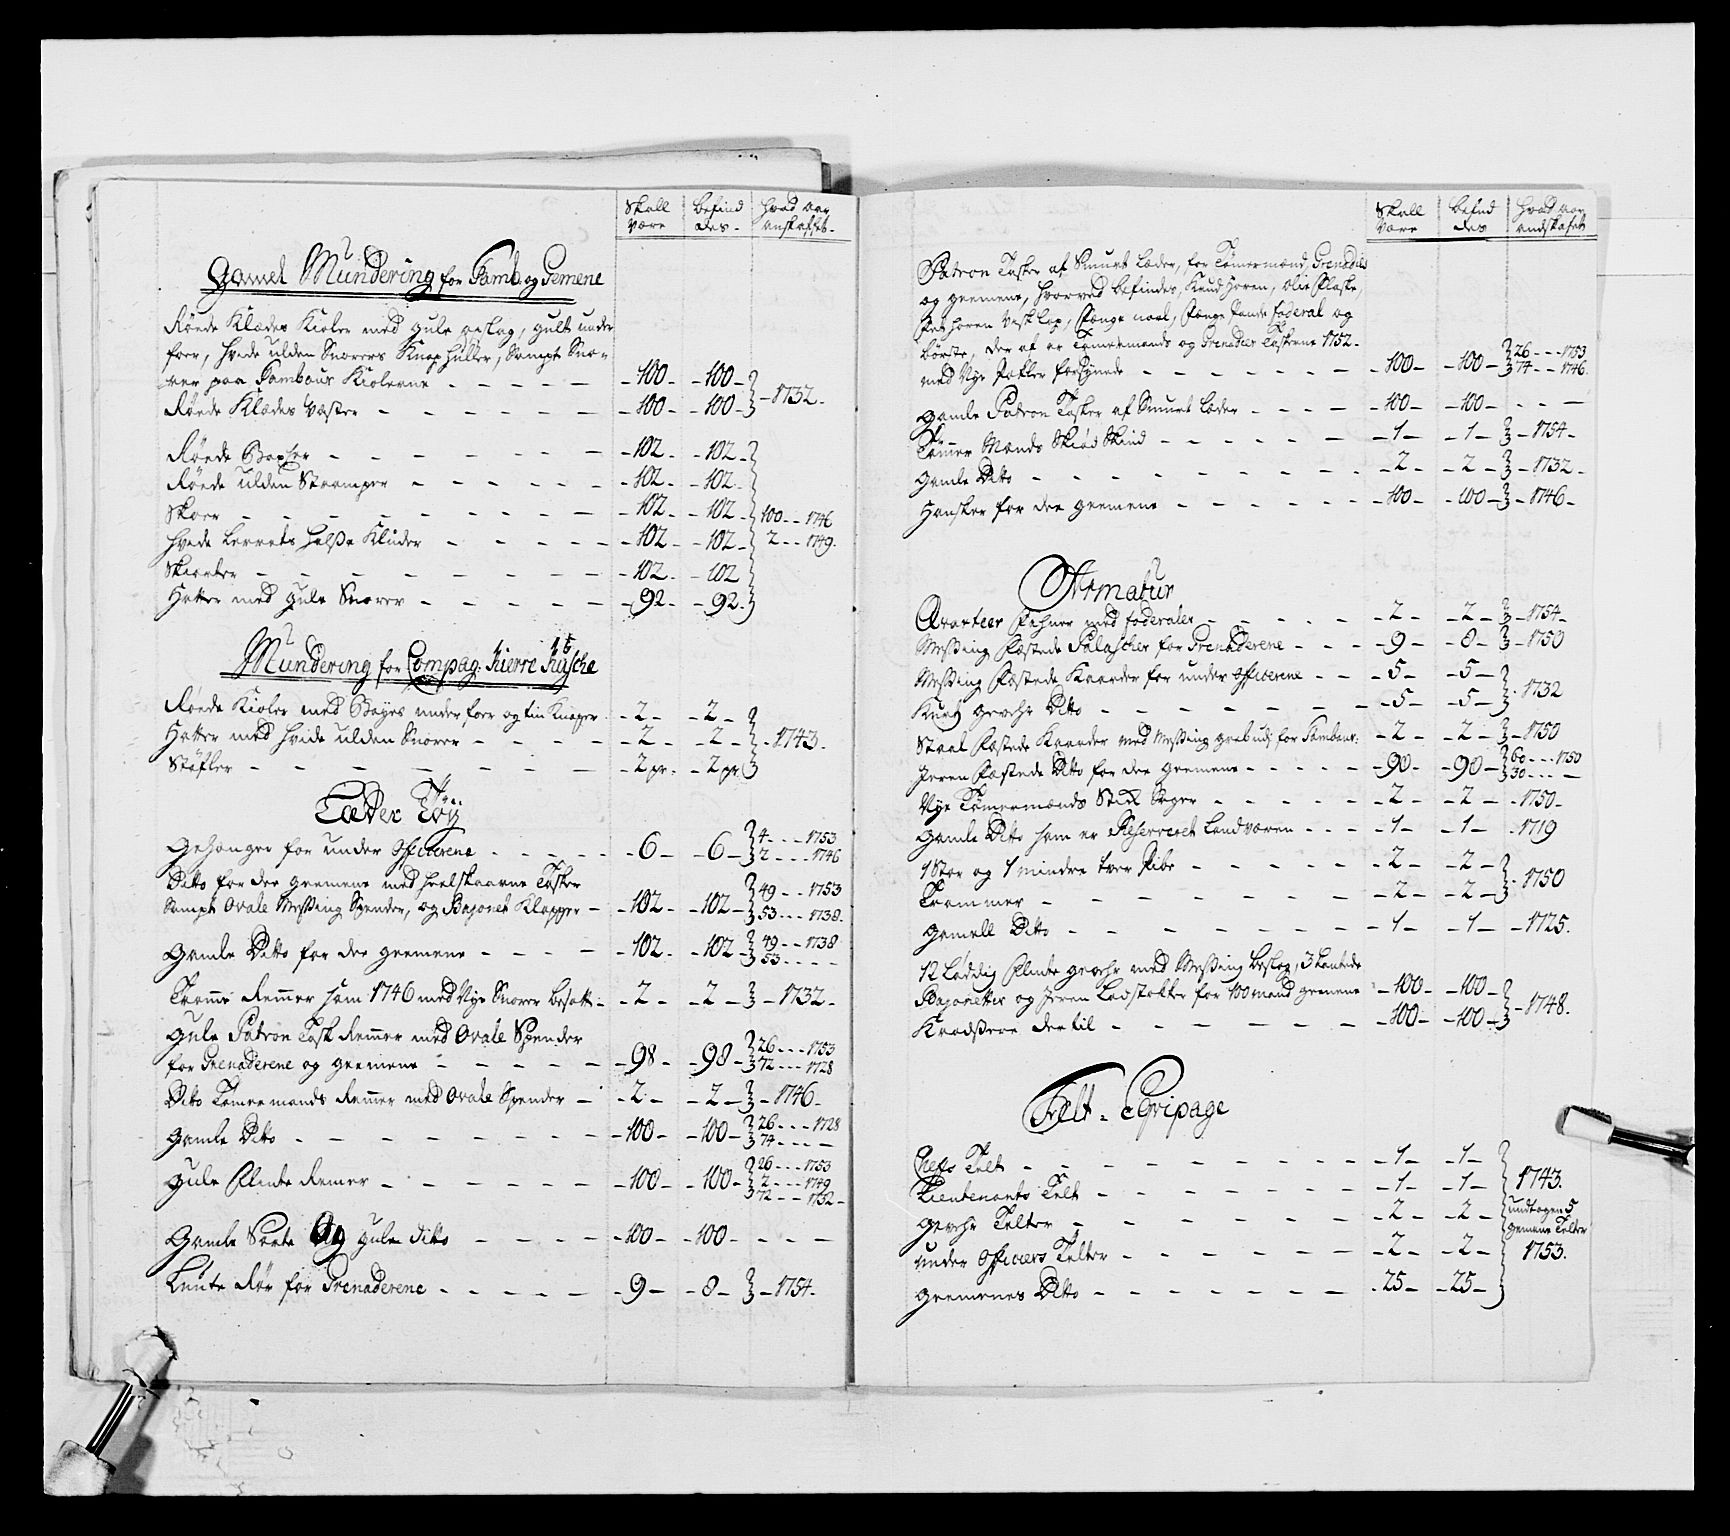 Skall være | befind des - | hvad aar anskaffet -
Gamel Mundering for Tamb. og Gemene
Röede Klædes Kioler med gule opslag, gult under
foer, hvide ulden Snorers Knap huller, Sampt Sno-
rer paa Tambour Kiolerne - 100 - - 100 -
Röede Klædes Væster - 100 - - 100 - } - 1732 -
Röede Boxser - 102 - - 102 -
Röede ulden Strömper - 102 - - 102 -
Skoer - 102 - - 102 - 100 - - 1746
hvide Lerrets halsse Klüder - 102 - - 102 - 2 - - - 1749.
Skiorter - 102 - - 102
Hatter med gule Snorer - 92 - - 92 -
Mundering for Compag:
Röede Kioler med Boyes under foer og tin Knaper - 2 - - 2 -
Hatter med hvide ulden Snorer - 2 - - 2 - } - 1743 -
Stöfler - 2 pr. - 2 pr.
Læder Töy
Gehenger for under Officerene - 6 - - 6 - } 4 - - - 1753
2 - - - 1746
Ditto for de geemene med heelskaarne Tasker
Sampt Ovale Messing Spender, og Bajonet Klapper - 102 - - 102 - } 49 - - 1753
53 - - - 1738.
Gamle Ditto for de geemene - 102 - - 102 - } 49 - - 1738
53 - - - -
Tromme Remmer som 1746 med Nye Snorer besatt - 2 - - 2 - } - 1732 -
Gule Patron Task Remmer med Ovale Spender
for Grenaderene og geemene - 98 - - 98 - } 26 - - - 1753
72 - - - 1728
Ditto Tömermands Remmer med Ovale Spender - 2 - - 2 - } - 1746 -
Gamle Ditto - 100 - - 100 - } 26 - - - 1728
74 - - - -
Gule Flinte Remer - 100 - - 100 - } 26 - - - 1753
2 - - - 1749
72 - - 1732 -
Gamle Sorte Og gule ditto - 100 - - 100 - - - -
Lunte Rör for Grenaderene - 9 - - 8 - } - 1754 -
Skall være | befind des | hvad aar andskafett
Patron Tasker af Smurt Læder, for Tömermænd, Grenader
og geemene, hvorved befindes, Krud horen, olie Flaske,
Fet horen Visk lap, Fænge naal, Fænge Pande foderal og
börste, der af er Tömermands og Grenader Taskerne 1752 -
med Nye forsynede - 100 - - 100 - } 26 - - - 1753
74 - - 1746
gamle Patron Tasker af Smurt Læder - 100 - - 100 - - - -
Tömmer Mands Skiöd Skind - 1 - - 1 - } - 1754 -
gamle Ditto - 2 - - 2 - } - 1732 -
Hansker for de geemene - 100 - - 100 - } - 1746 -
Armatur
Qvarteer Fahner med foderaler - 2 - - 2 - } - 1754 -
Messing Fæstede Palascher for Grenaderene - 9 - - 8 - } - 1750
Messing Fæstede Kaarder for under Officerene - 5 - - 5 -
Kurtz gevehr Ditto - 5 - - 5 - } - 1732
Staal Fæstede Kaarder med Messing for Tambour: - 2 - - 2 - } - 1750
Jeren Fæstede Ditto for de geemene - 90 - - 90 - } 60 - - - 1750
30 - - - -
Nye Tömermænds Stik Sager - 2 - - 2 - - 1750 -
gamle Ditto som er Reserveret Landværen - 1 - - 1 - - 1719
1 Stor og 1 mindre tver Pibe - 2 - - 2 -
Trommer - 2 - - 2 - } - 1750
gamell Ditto - 1 - - 1 - - 1725.
12 Löddig Flinte gevehr med Messing beslag, 3 kantede
Bajonetter og Jeren Ladstokker for 100 mand geemene - 100 - - 100 -
Kradssere der til - 100 - - 100 - } - 1748.
Felt - Eqvipage
Chefs Telt - 1 - - 1 -
Lieutenants Telt - 1 - - 1 - 1743.
gevehr Telter - 2 - - 2 - undtagen 5 gemene Telter
under Officers Telter - 2 - - 2 - 1753.
geemenes Ditto - 25 - - 25 -